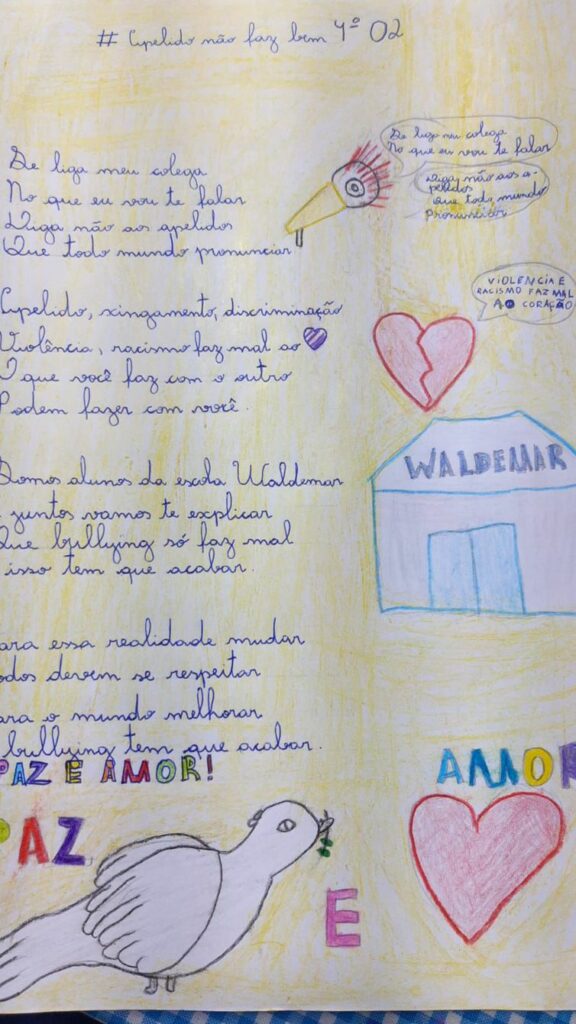 # Apelido não faz bem 4º 02
Se liga meu colega
No que eu vou te falar
Diga não aos apelidos
Que todo mundo pronunciar
Se liga meu colega
No que eu vou te falar
Diga não aos a-
pelidos
Que todo mundo
pronunciar
Apelido, xingamento, discriminação
Violência, racismo faz mal ao
O que você faz com o outro
Podem fazer com você.
VIOLENCIA E
RACISMO FAZ MAL
AO CORAÇÃO
Somos alunos da escola Waldemar
juntos vamos te explicar
Que bullying só faz mal
isso tem que acabar.
WALDEMAR
ara essa realidade mudar
odos devem se respeitar
ara o mundo melhorar
bullying tem que acabar.
PAZ E AMOR!
PAZ
E
AMOR